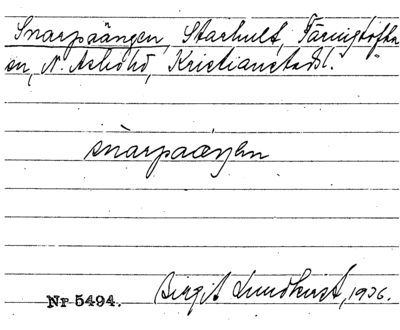 Snarpaängen, Starhult, Färingtofta
sn, N. Åsbo hd, Kristianstads l.
snarpaäŋen
Nr 5494.
Birgit Lundkvist, 1936.